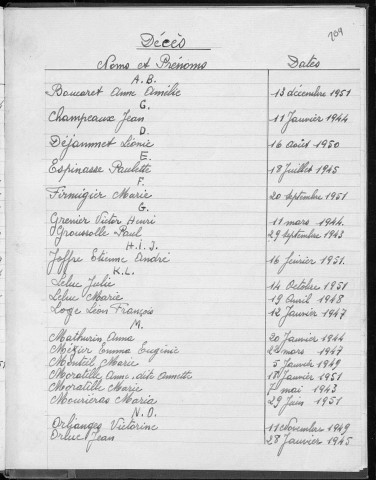 209
Décès
Noms et Prénoms Dates
A.B.
Boucoret Anne Amélie 13 décembre 1951
G.
Champeaux Jean 11 Janvier 1944
D.
Déjammet Léonie 16 août 1950
E.
Espinasse Paulette 18 Juillet 1945
F.
Firmigier Marie 20 septembre 1951
G.
Grenier Victor Henri 11 mars 1944.
Groussolle Paul 29 septembre 1943
H.I.J.
Joffre Etienne André 16 février 1951.
K.L.
Leluc Julie 14 octobre 1951
Leluc Marie 19 avril 1948
Loge Léon François 12 Janvier 1947
M.
Mathurin Anna 20 Janvier 1944
Mézier Emma Eugénie mars 1947
Monteil Marie 5 Janvier 1949
Moratille Anne, dite Annette Janvier 1951
Moratille Marie mai 1943
Mourieras Maria 29 Juin 1951
N.O.
Orliangès Victorine 11 novembre 1949
Orluc Jean 28 Janvier 1945